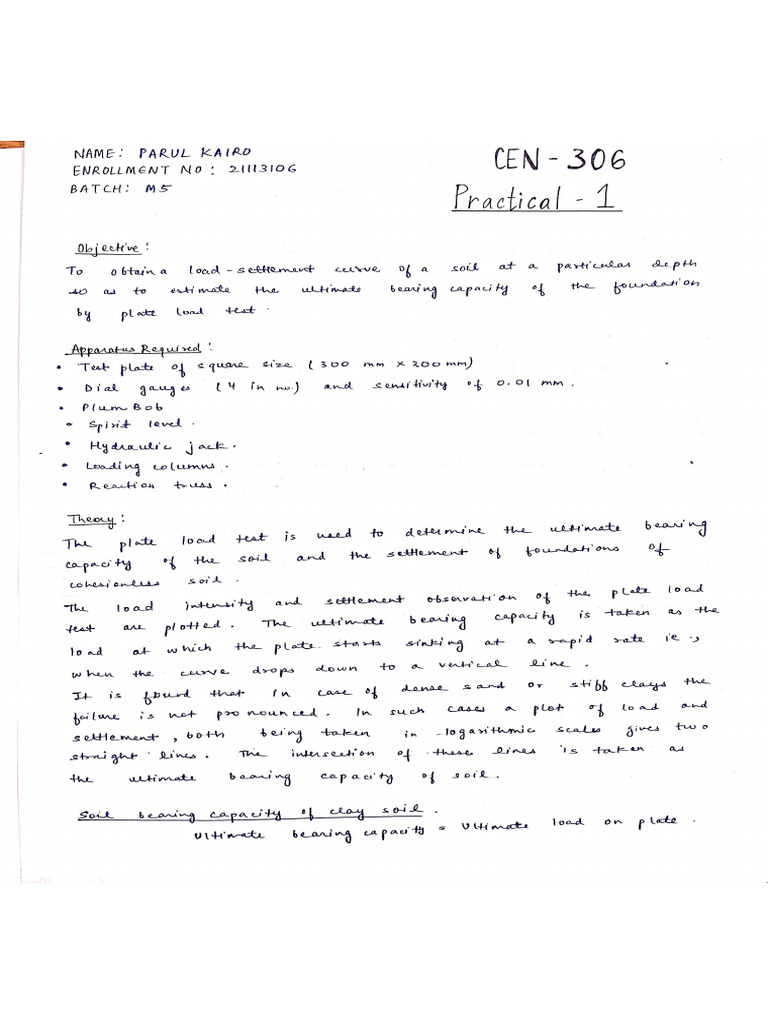 NAME: PARUL KAIRO
ENROLLMENT NO: 21113106
BATCH: M5
CEN-306
Practical-1
Objective:
To obtain a load-settlement curve of a soil at a particular depth
so as to estimate the ultimate bearing capacity of the foundation
by plate load test.
Apparatus Required:
• Test plate of square size (300 mm x 300mm)
• Dial gauges (4 in no.) and sensitivity of 0.01 mm.
• Plum Bob
• Spirit level.
• Hydraulic jack.
• Loading columns.
• Reaction truss.
Theory:
The plate load test is used to determine the ultimate bearing
capacity of the soil and the settlement of foundations of
cohesionless soil.
The load intensity and settlement observation of the plate load
test are plotted. The ultimate bearing capacity is taken as the
load at which the plate starts sinking at a rapid rate ie.,
when the curve drops down to a vertical line.
It is found that in case of dense sand or stiff clays the
failure is not pronounced. In such cases a plot of load and
settlement, both being taken in logarithmic scales gives two
straight lines. The intersection of these lines is taken as
the ultimate bearing capacity of soil.
Soil bearing capacity of clay soil.
Ultimate bearing capacity = Ultimate load on plate.